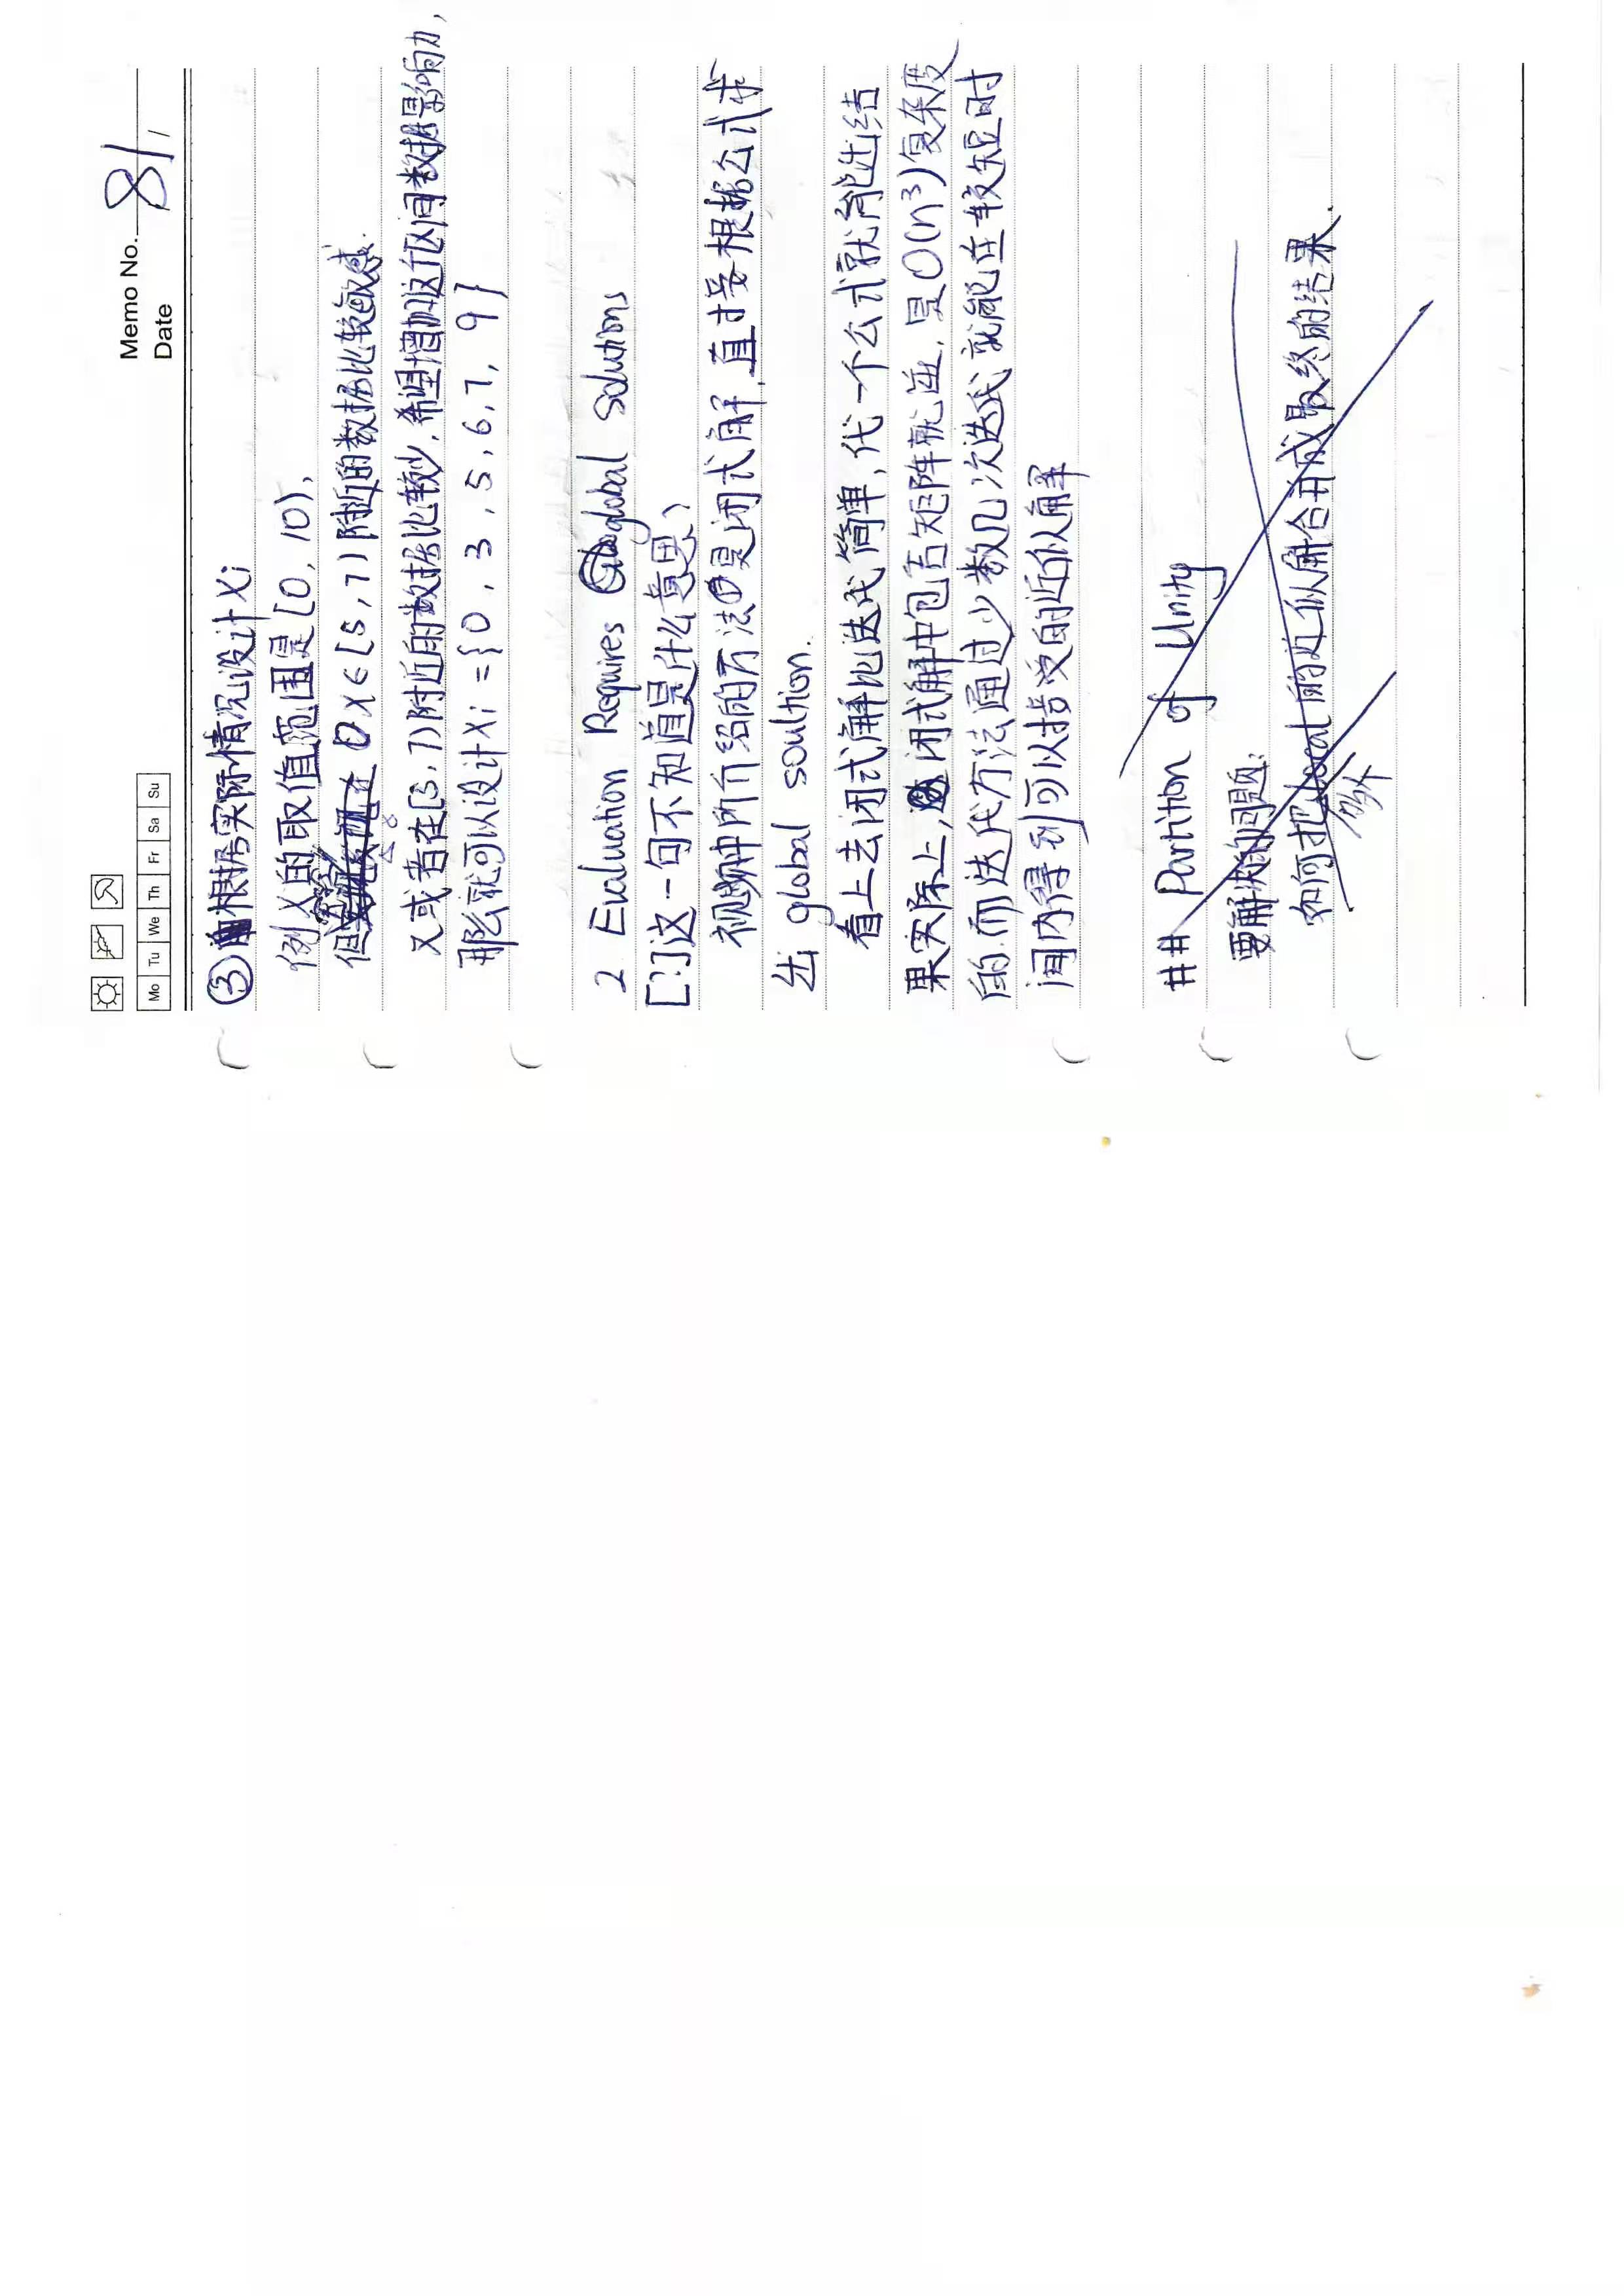 Mo Tu We Th Fr Sa Su
Memo No. 81
Date /
③ 根据实际情况设计Xi
例X的取值范围是[0, 10),
但 X∈[5, 7) 附近的数据比较敏感.
又或者在[5, 7)附近的数据比较少, 希望增加这个区间数据影响力,
那么就可以设计Xi = {0, 3, 5, 6, 7, 9}
2 Evaluation Requires global Solutions
[?]这一句不知道是什么意思?
视频中所介绍的方法是闭式解, 直接根据公式求
出 global soultion.
看上去闭式解比迭代简单, 代一个公式就能出结
果实际上, 闭式解中包含矩阵就逆, 是O(n³)复杂度
的.而迭代方法通过少数几次迭代就能在较短时
间内得到可以接受的近似解
## Partition of Unity
要解决的问题:
如何把多个local的近似解合并成最终的结果.